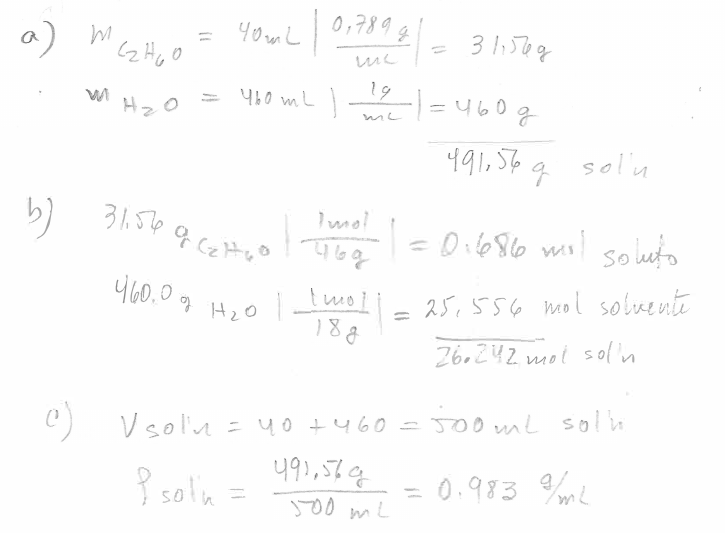 a) m C2H6O = 40 mL | 0,789 g / mL | = 31,56 g
m H2O = 460 mL | 1g / mL | = 460 g
491,56 g sol'n
b) 31.56 g C2H6O | 1mol / 46g | = 0.686 mol soluto
460.0 g H2O | 1mol / 18g | = 25,556 mol solvente
26.242 mol sol'n
c) V sol'n = 40 + 460 = 500 mL sol'n
ρ sol'n = 491,56g / 500 mL = 0.983 g/mL